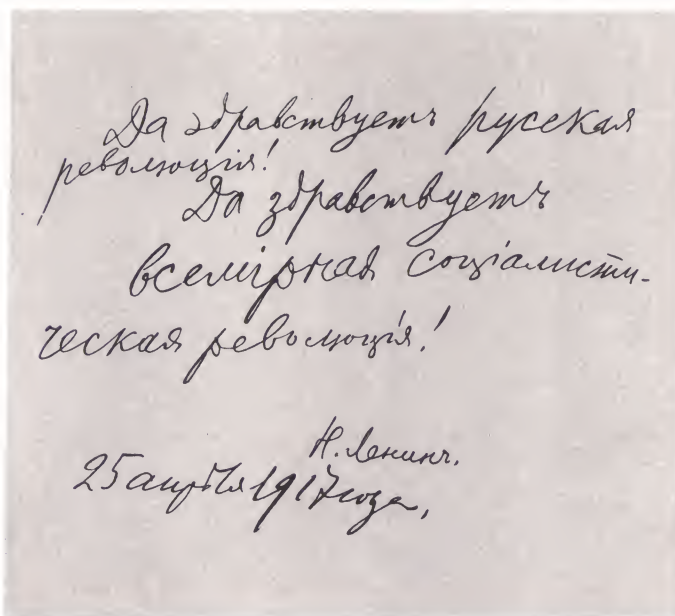 Да здравствуетъ русская
революція!
Да здравствуетъ
всемірная соціалисти-
ческая революція!
Н. Ленинъ.
25 апрѣля 1917 года,